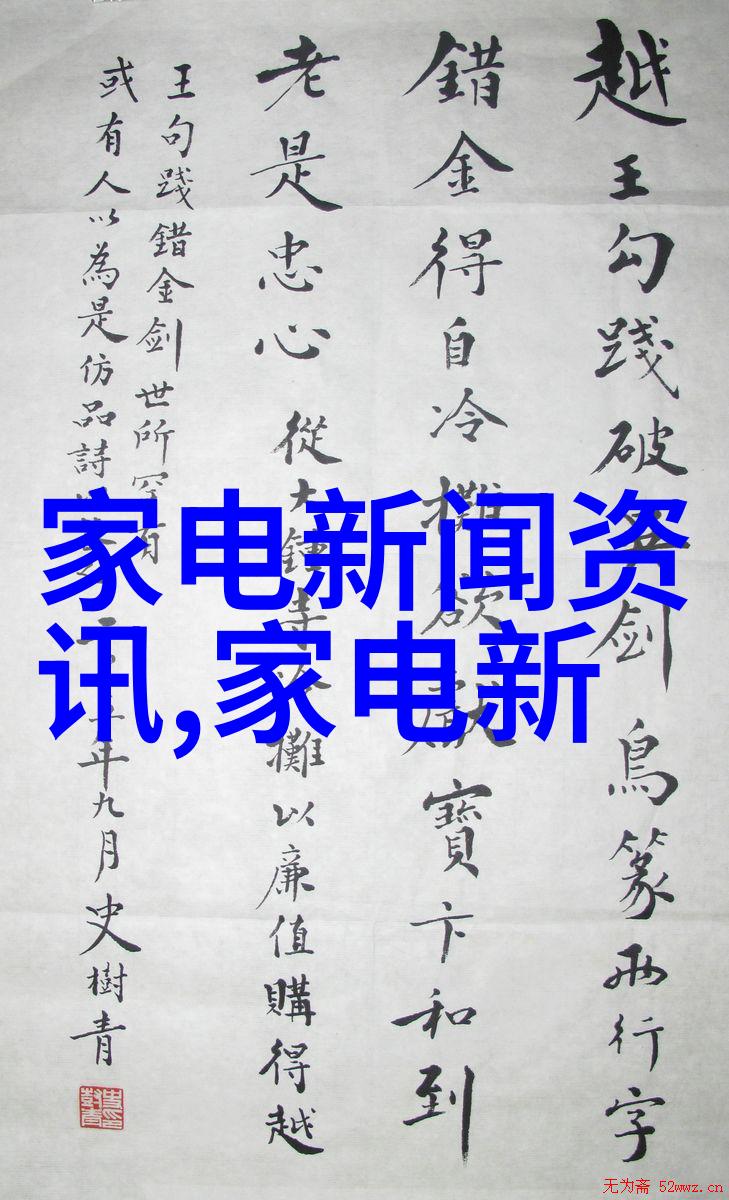 越王勾踐破吳劍 鳥篆兩行字
錯金得自冷攤欲獻寶卞和到
老是忠心 從大鐘寺冷攤以廉值購得越
王句踐錯金劍世所罕有
或有人以為是仿品詩 年九月史樹青
家电新闻资
讯,家电新
无为斋 52wwz.cn